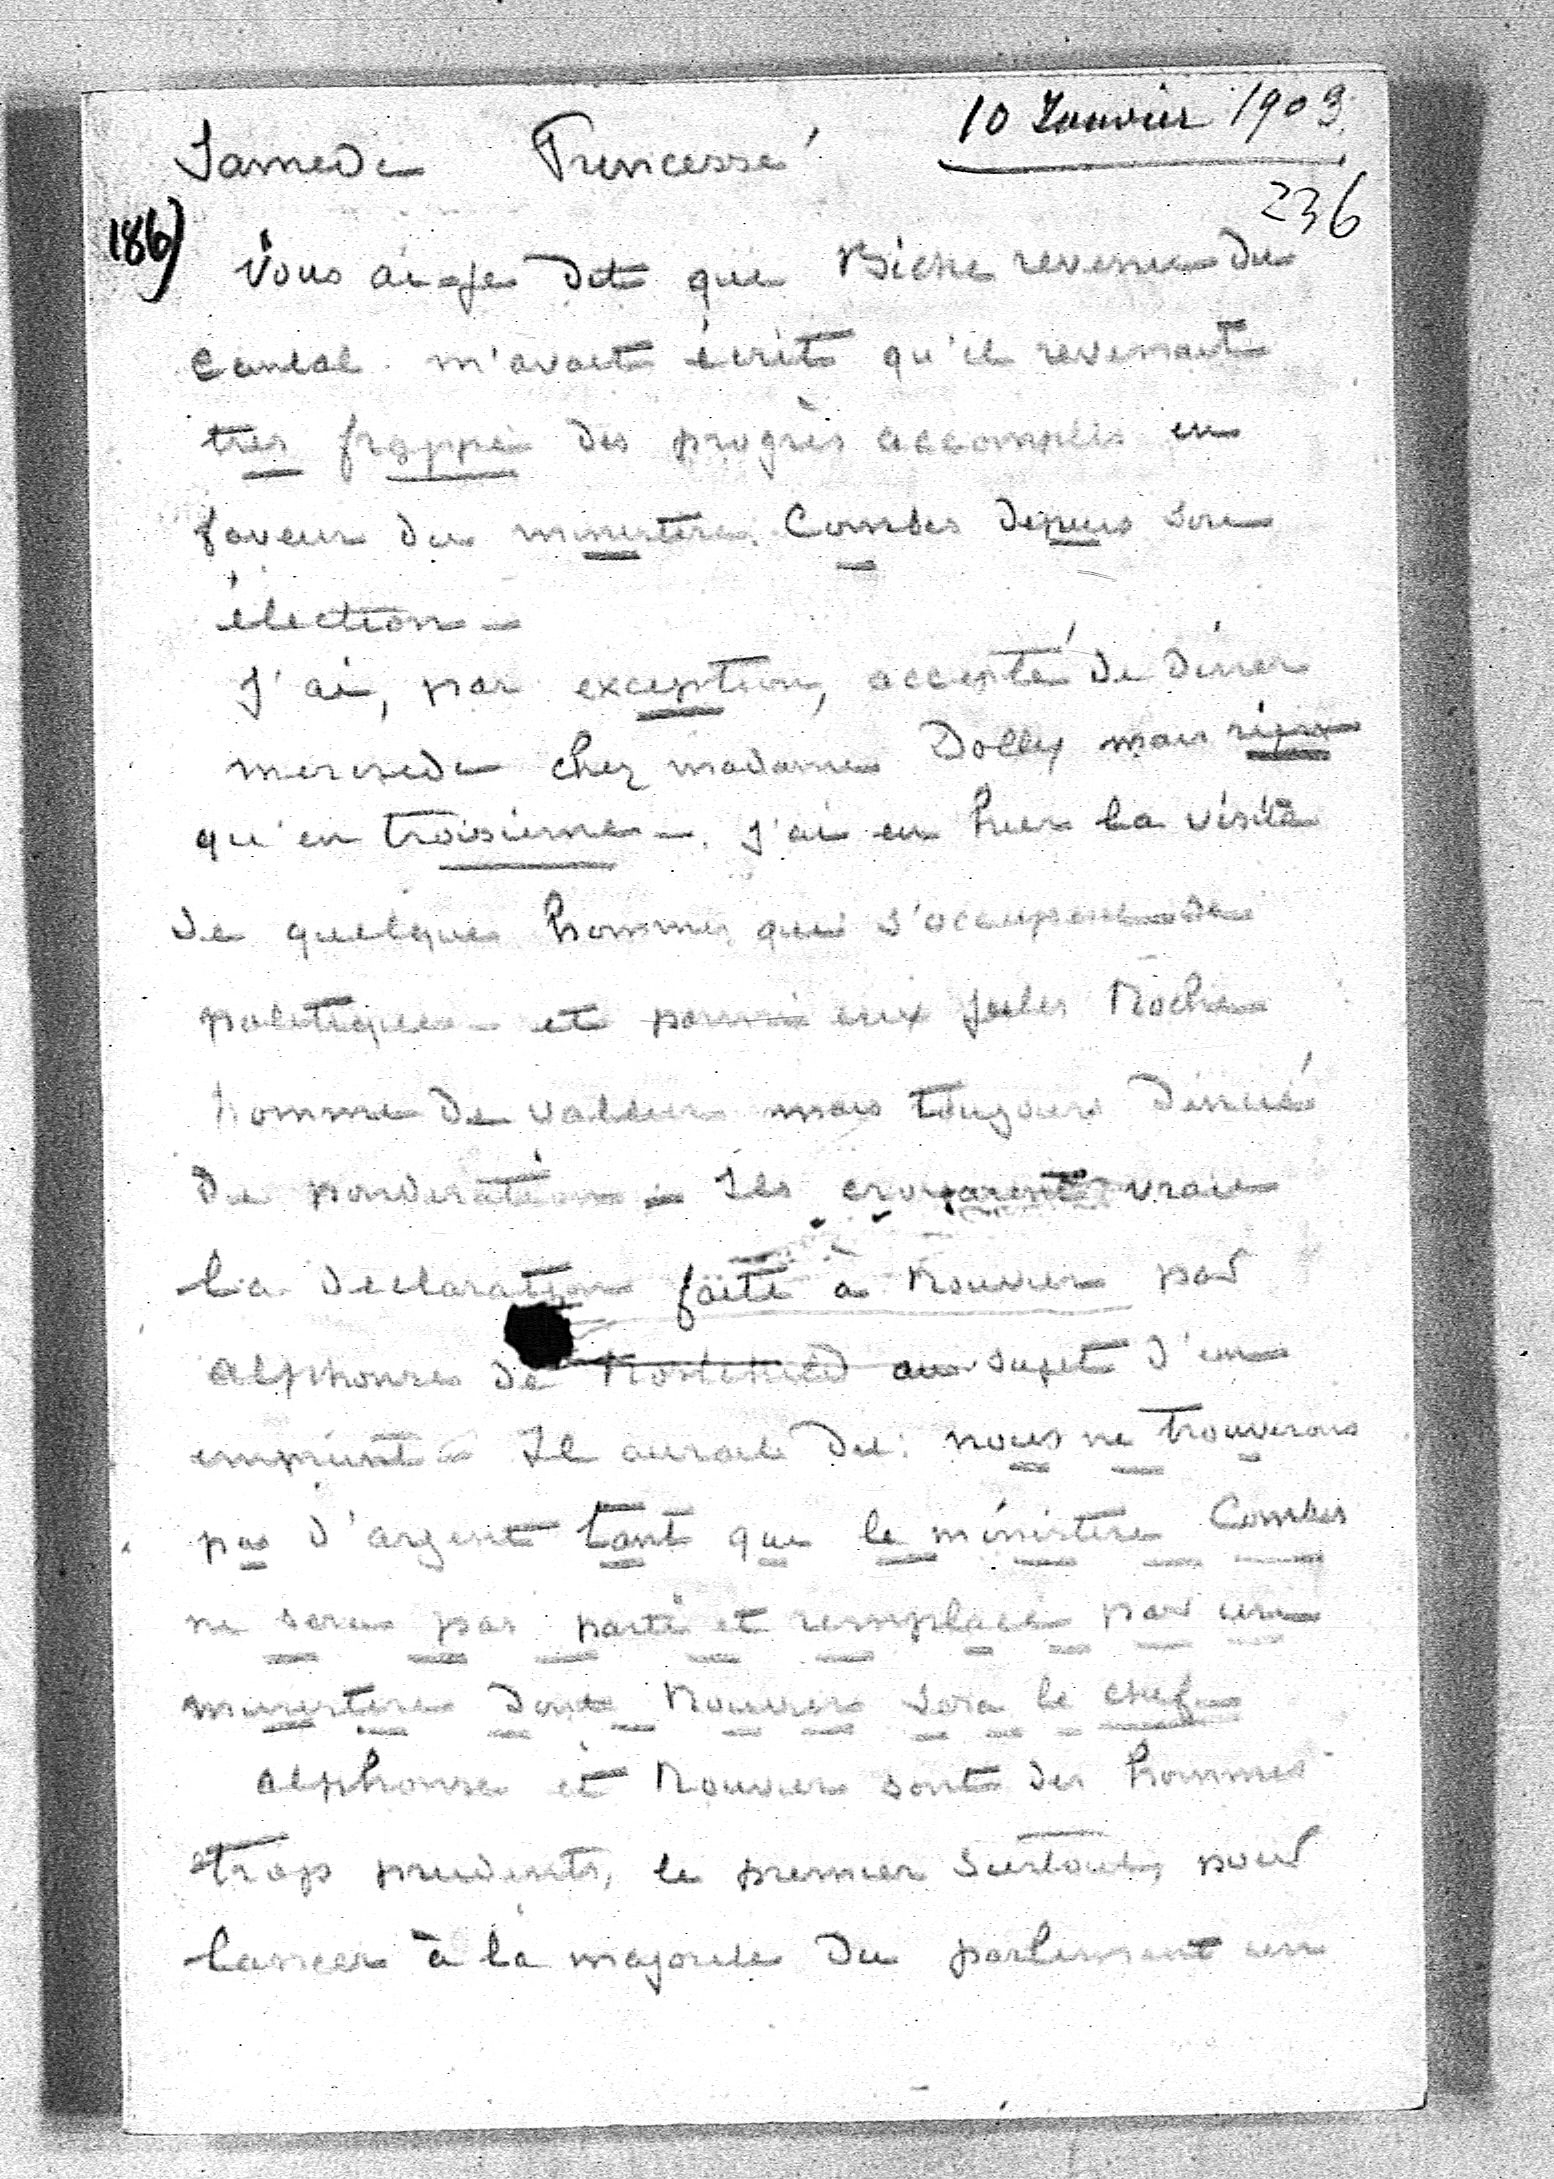 10 Janvier 1903
Samedi Princesse
236
186)
Vous ai-je dit que Biche revenu du
Cantal m'avait écrit qu'il revenait
très frappé des progrès accomplis en
faveur du ministère Combes depuis son
élection -
J'ai, par exception, accepté de diner
mercredi chez madame Dolly mais rien
qu'en troisième -. J'ai eu hier la visite
de quelques hommes qui s'occupent de
politique - et parmi eux Jules Roche
homme de valeur mais toujours dénué
de pondération - Ils croyaient vraie
la déclaration faite à Rouvier par
Alphonse de Rothschild au sujet d'un
emprunt - Il aurait dit: nous ne trouverons
pas d'argent tant que le ministère Combes
ne sera pas parti et remplacé par un
ministère dont Rouvier sera le chef -
Alphonse et Rouvier sont des hommes
trop prudents, le premier surtout, pour
lancer à la majorité du parlement un